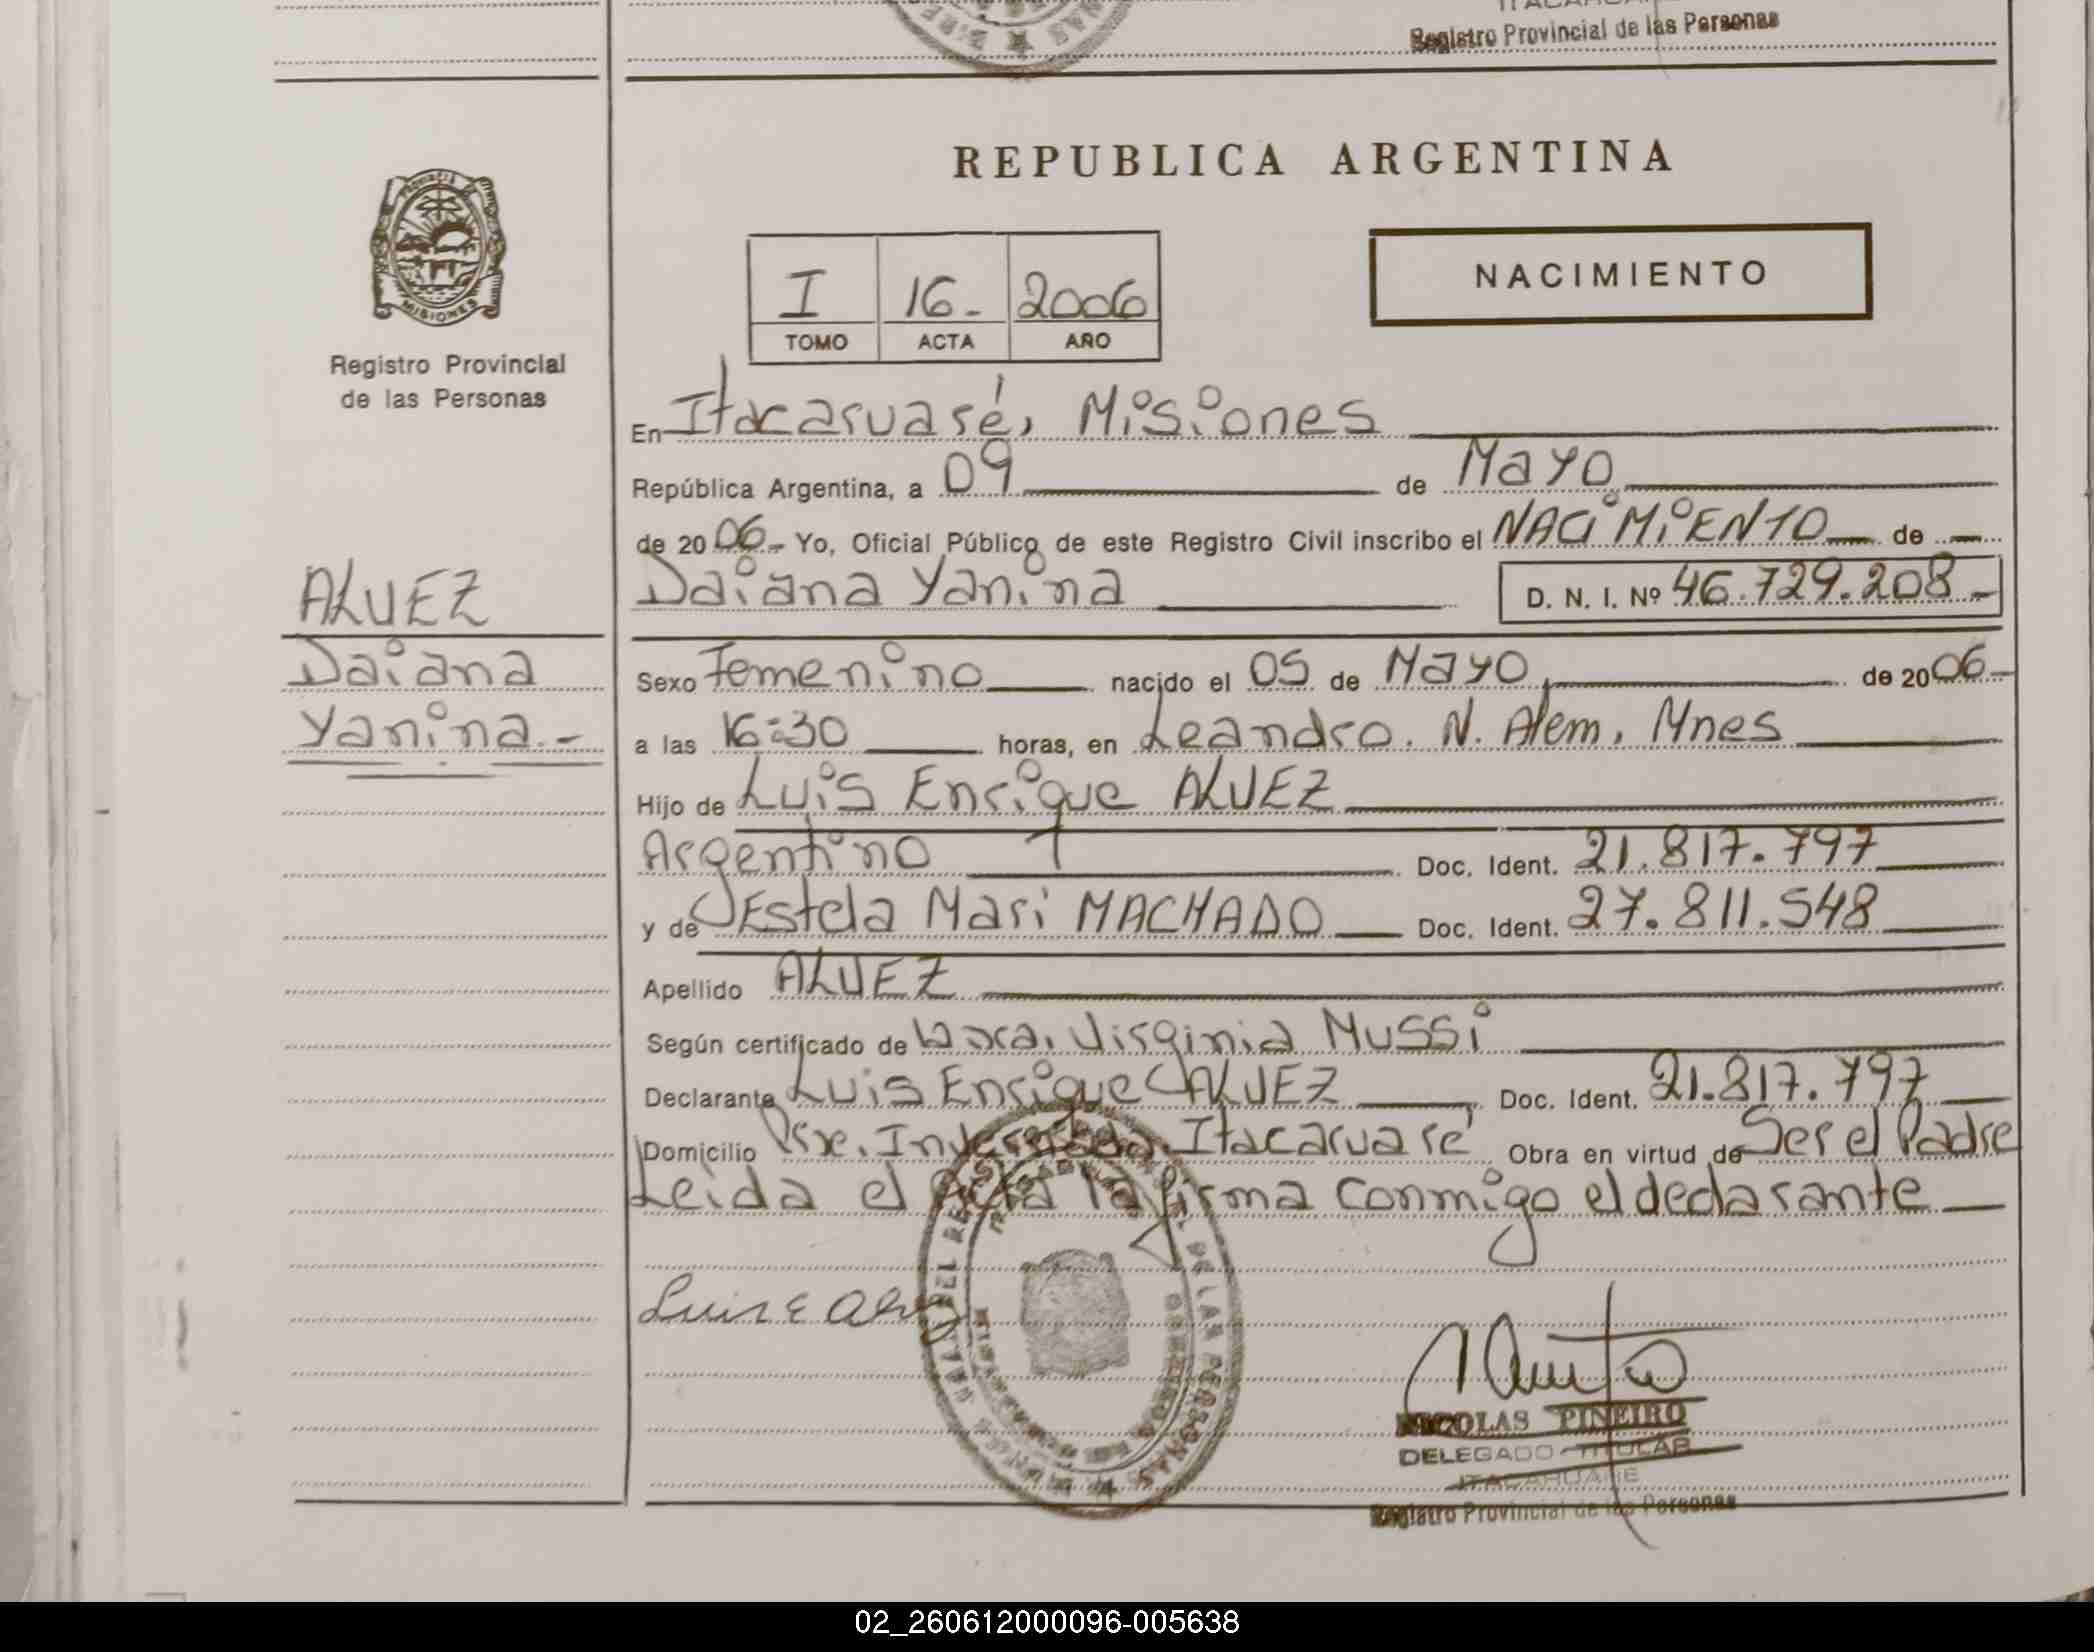 Registro Provincial de las Personas
REPUBLICA ARGENTINA
PROVINCIA DE
MISIONES
Registro Provincial
de las Personas
I 16- 2006
TOMO ACTA AÑO
NACIMIENTO
En Itacaruaré, Misiones
República Argentina, a 09 de Mayo
de 2006.- Yo, Oficial Público de este Registro Civil inscribo el NACiMiENTO de
Daiana Yanina D. N. I. Nº 46.729.208-
ALVEZ
Daiana
Yanina.-
Sexo Femenino nacido el 05 de Mayo de 2006-
a las 16:30 horas, en Leandro. N. Alem, Mnes
Hijo de Luis Enrique ALVEZ
Argentino Doc. Ident. 21.817.797
y de Estela Mari MACHADO Doc. Ident. 27.811.548
Apellido ALVEZ
Según certificado de Virginia MUSSi
Declarante Luis Enrique ALVEZ Doc. Ident. 21.817.797
Domicilio Itacaruaré Obra en virtud de Ser el Padre
Leida el Acta la firma conmigo el declarante
Luis E Alvez
NICOLAS PIÑEIRO
DELEGADO TITULAR
ITACARUARE
Registro Provincial de las Personas
02_260612000096-005638